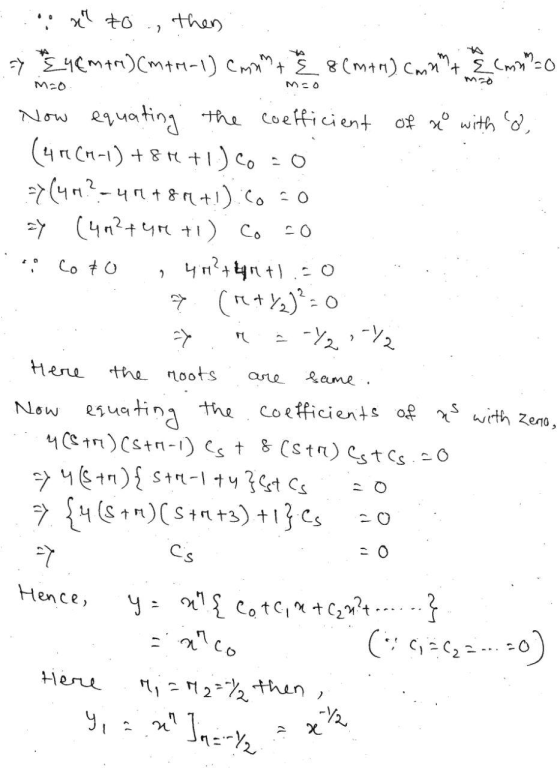 ∵ x^r ≠ 0 ., then
⇒ ∞Σm=0 4(m+r)(m+r-1) Cm x^m + ∞Σm=0 8(m+r) Cm x^m + ∞Σm=0 Cm x^m = 0
Now equating the coefficient of x⁰ with '0',
(4r(r-1) + 8r + 1) C₀ = 0
⇒ (4r² - 4r + 8r + 1) C₀ = 0
⇒ (4r² + 4r + 1) C₀ = 0
∵ C₀ ≠ 0 , 4r² + 4r + 1 = 0
⇒ (r + 1/2)² = 0
⇒ r = -1/2 , -1/2
Here the roots are same .
Now equating the coefficients of x^s with zero,
4(s+r)(s+r-1) Cs + 8(s+r) Cs + Cs = 0
⇒ 4(s+r){ s+r-1+4 } Cs + Cs = 0
⇒ {4(s+r)(s+r+3) + 1} Cs = 0
⇒ Cs = 0
Hence, y = x^r { C₀ + C₁x + C₂x² + ...... }
= x^r C₀ (∵ C₁ = C₂ = ... = 0)
Here r₁ = r₂ = -1/2 then ,
y₁ = x^r ]r=-1/2 = x^-1/2